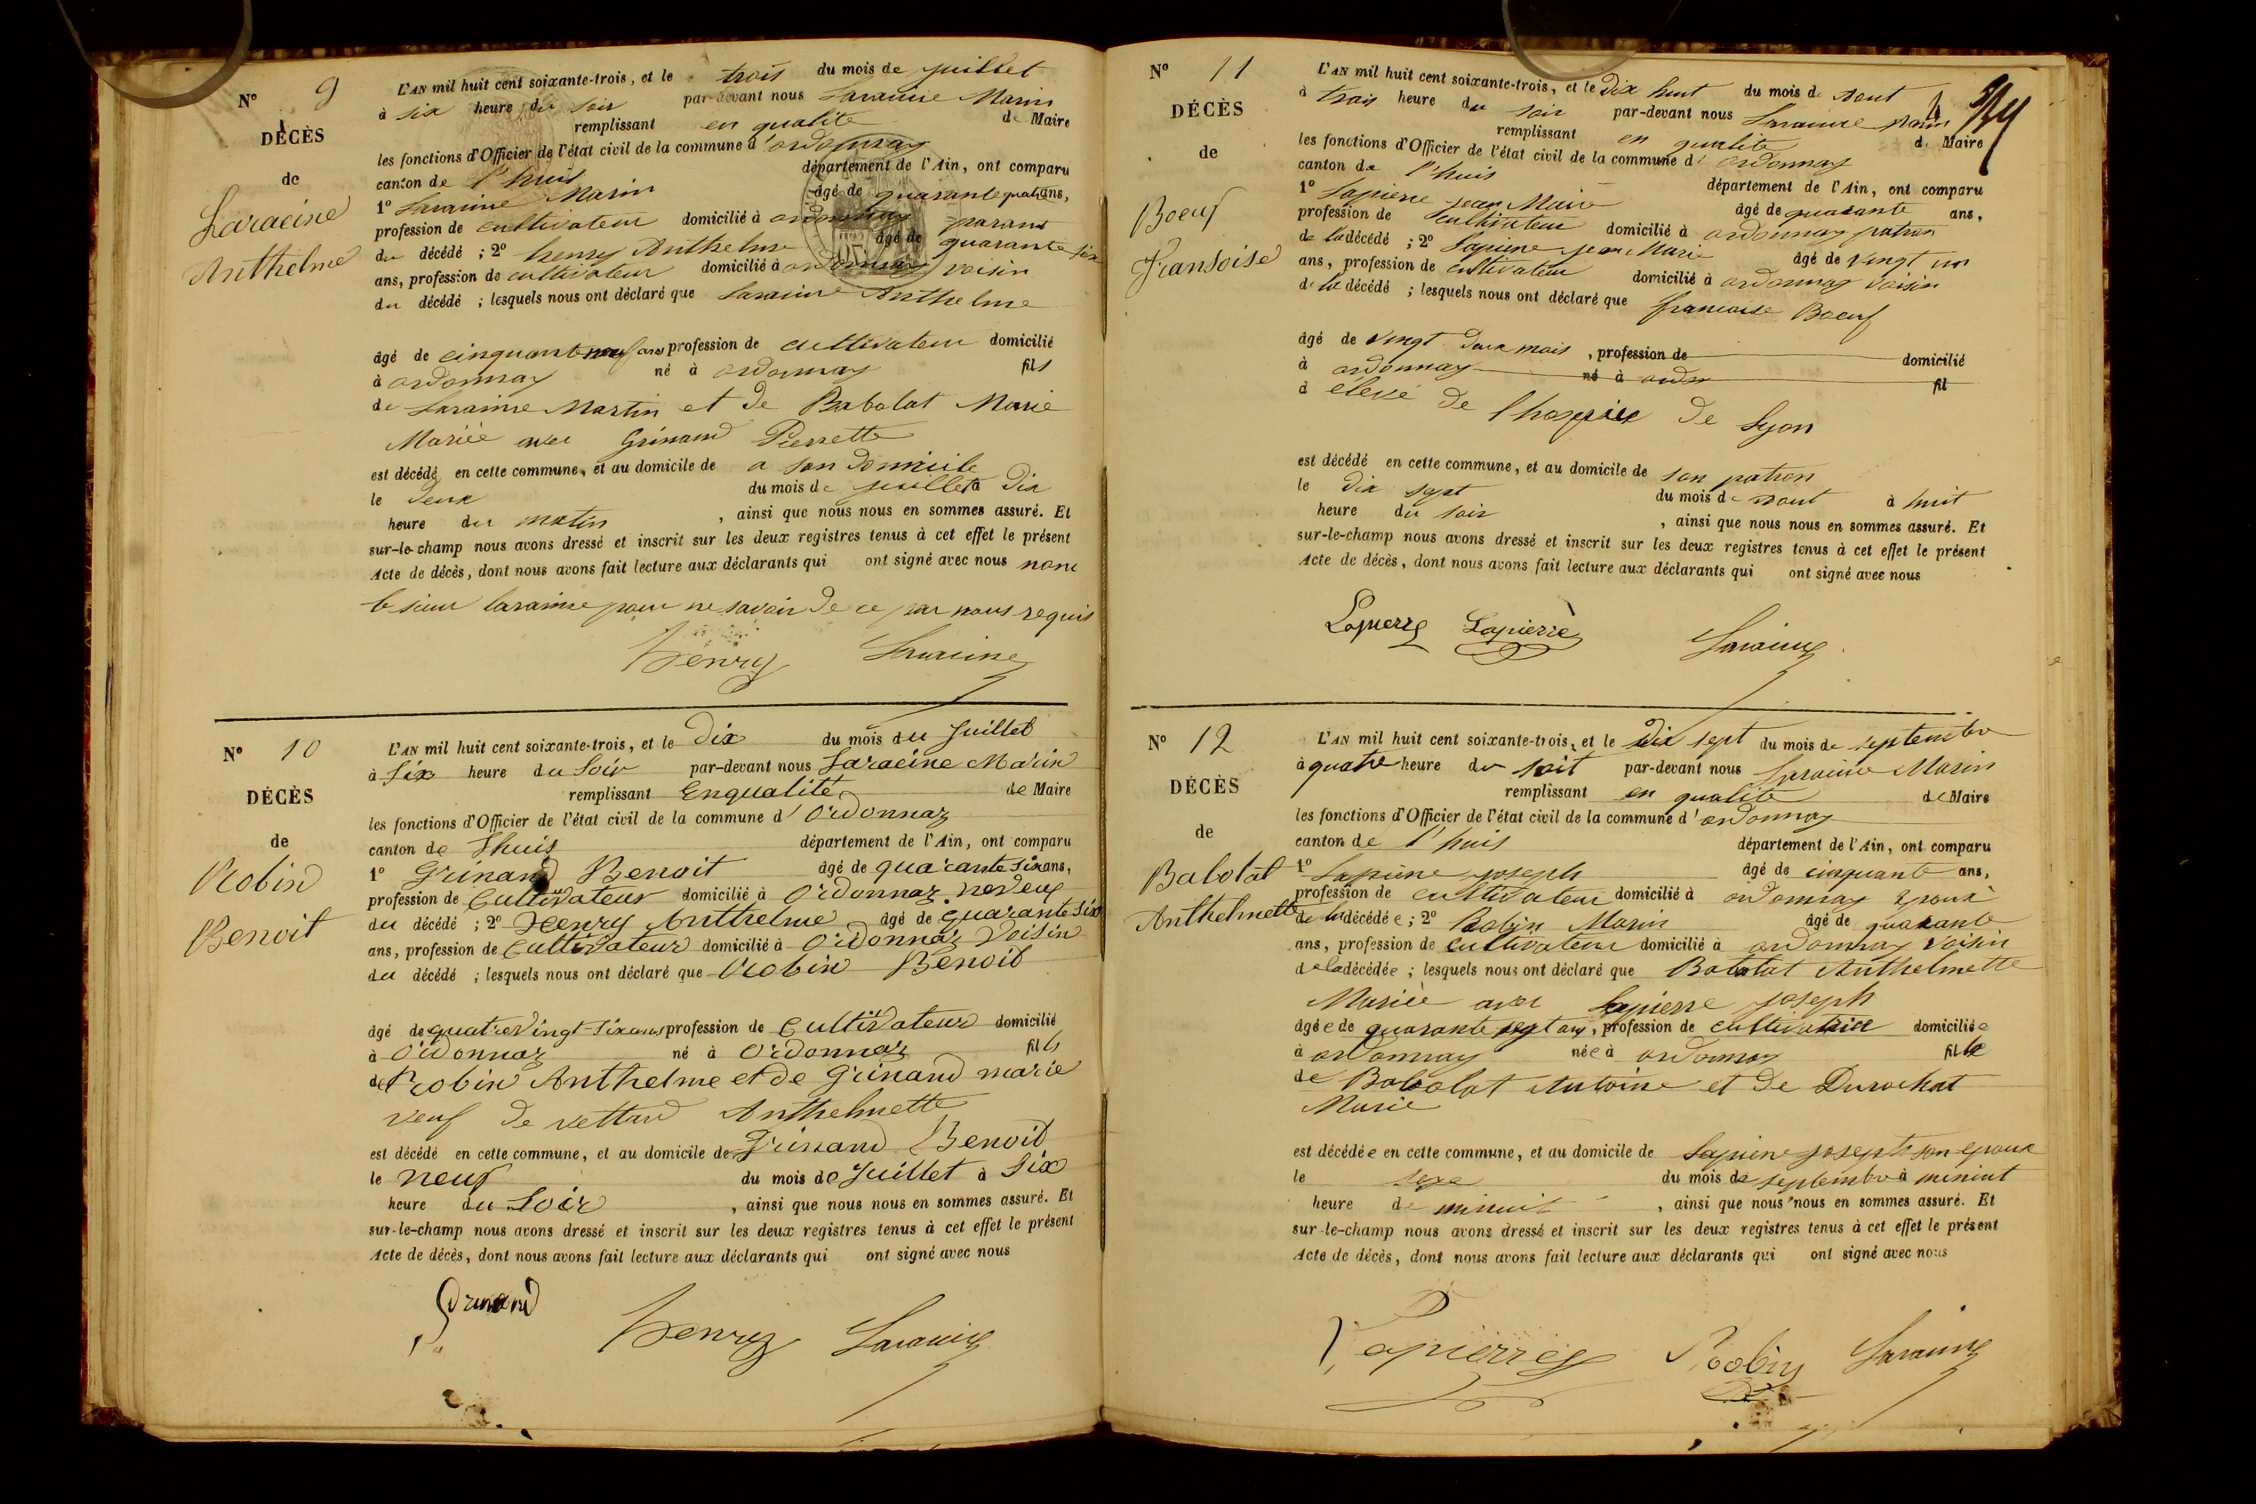 N° 9
DÉCÈS
de
Laracine
Anthelme
L'AN mil huit cent soixante-trois, et le trois du mois de juillet
à six heure du soir par-devant nous Laracine Marin
remplissant en qualité de Maire
les fonctions d'Officier de l'état civil de la commune d'ordonnaz
canton de l'huis département de l'Ain, ont comparu
1° Laracine Marin âgé de quarante quatre ans,
profession de cultivateur domicilié à ordonnaz parans
du décédé ; 2° henry Anthelme âgé de quarante six
ans, profession de cultivateur domicilié à ordonnaz voisin
du décédé ; lesquels nous ont déclaré que Laracine Anthelme
âgé de cinquante neuf ans profession de cultivateur domicilié
à ordonnaz né à ordonnaz fils
de Laracine Martin et de Babolat Marie
Mariée avec Grinand Pierrette
est décédé en cette commune, et au domicile de a son domicile
le deux du mois de juillet à dix
heure du matin , ainsi que nous nous en sommes assuré. Et
sur-le-champ nous avons dressé et inscrit sur les deux registres tenus à cet effet le présent
Acte de décès, dont nous avons fait lecture aux déclarants qui ont signé avec nous non
le sieur laracine pour ne savoir de ce par nous requis
henry Laracine
N° 10
DÉCÈS
de
Robin
Benoit
L'AN mil huit cent soixante-trois, et le Dix du mois du Juillet
à Six heure du Soir par-devant nous Laracine Marin
remplissant Enqualité de Maire
les fonctions d'Officier de l'état civil de la commune d'Ordonnaz
canton de Lhuis département de l'Ain, ont comparu
1° Grinand Benoit âgé de quarante Six ans,
profession de Cultivateur domicilié à Ordonnaz neveux
du décédé ; 2° Henry Anthelme âgé de quarante Six
ans, profession de Cultivateur domicilié à Ordonnaz Voisin
du décédé ; lesquels nous ont déclaré que Robin Benoit
âgé de quatre Vingt Six ans profession de Cultivateur domicilié
à Ordonnaz né à Ordonnaz fils
de Robin Anthelme et de Grinand marie
veuf de vettard Anthelmette
est décédé en cette commune, et au domicile de Grinand Benoit
le neuf du mois de Juillet à Six
heure du Soir , ainsi que nous nous en sommes assuré. Et
sur-le-champ nous avons dressé et inscrit sur les deux registres tenus à cet effet le présent
Acte de décès, dont nous avons fait lecture aux déclarants qui ont signé avec nous
Grinand henry Laracine
N° 11
DÉCÈS
de
Boeuf
Fransoise
L'AN mil huit cent soixante-trois, et le Dix huit du mois d aout
à trois heure du soir par-devant nous Laracine Marin
remplissant en qualité de Maire
les fonctions d'Officier de l'état civil de la commune d'ordonnaz
canton de l'huis département de l'Ain, ont comparu
1° Lapierre jean Marie âgé de quarante ans,
profession de cultivateur domicilié à ordonnaz patron
de la décédé ; 2° Lapierre jean Marie âgé de vingt un
ans, profession de cultivateur domicilié à ordonnaz voisin
de la décédé ; lesquels nous ont déclaré que francoise Boeuf
âgé de vingt deux mois , profession de domicilié
à ordonnaz né à ordon fil
d élevé de l'hospice de Lyon
est décédé en cette commune, et au domicile de son patron
le dix sept du mois d aout à huit
heure du soir , ainsi que nous nous en sommes assuré. Et
sur-le-champ nous avons dressé et inscrit sur les deux registres tenus à cet effet le présent
Acte de décès, dont nous avons fait lecture aux déclarants qui ont signé avec nous
Lapierre Lapierre Laracine
N° 12
DÉCÈS
de
Babolat
Anthelmette
L'AN mil huit cent soixante-trois, et le dix sept du mois de septembre
à quatre heure du soit par-devant nous Laracine Marin
remplissant en qualité de Maire
les fonctions d'Officier de l'état civil de la commune d'ordonnaz
canton de l'huis département de l'Ain, ont comparu
1° Lapierre joseph âgé de cinquante ans,
profession de cultivateur domicilié à ordonnaz époux
de la décédée ; 2° Robin Marin âgé de quarante
ans, profession de cultivateur domicilié à ordonnaz voisin
de la décédée ; lesquels nous ont déclaré que Babolat Anthelmette
Mariée avec Lapierre joseph
âgée de quarante sept ans, profession de cultivatrice domiciliée
à ordonnaz née à ordonnaz fille
de Babolat Antoine et de Durochat
Marie
est décédée en cette commune, et au domicile de Lapierre joseph son epoux
le seze du mois de septembre à minuit
heure de minuit , ainsi que nous nous en sommes assuré. Et
sur-le-champ nous avons dressé et inscrit sur les deux registres tenus à cet effet le présent
Acte de décès, dont nous avons fait lecture aux déclarants qui ont signé avec nous
Lapierre Robin Laracine